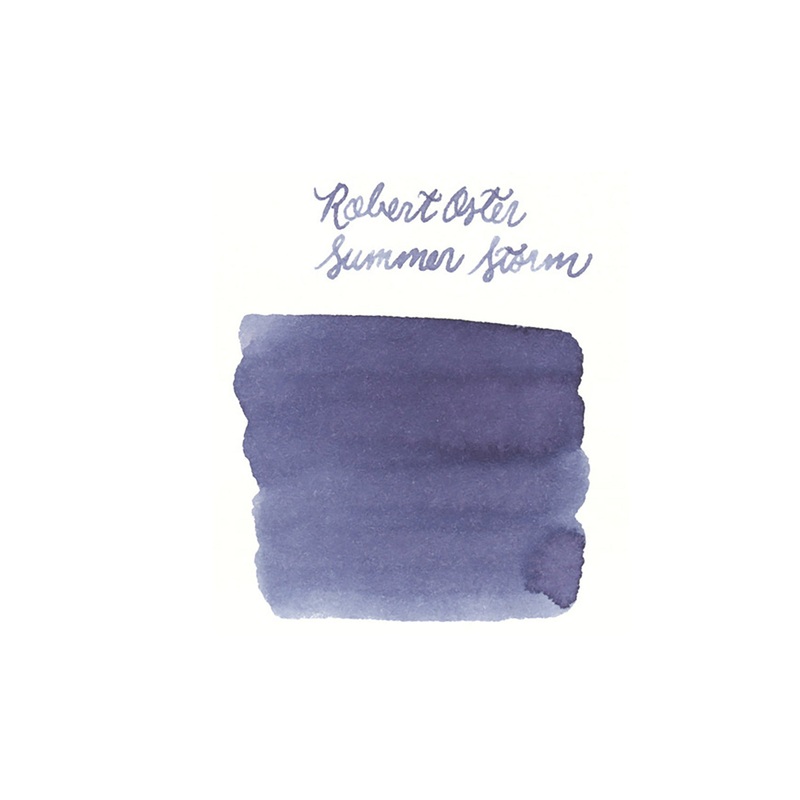 Robert Oster
Summer Storm